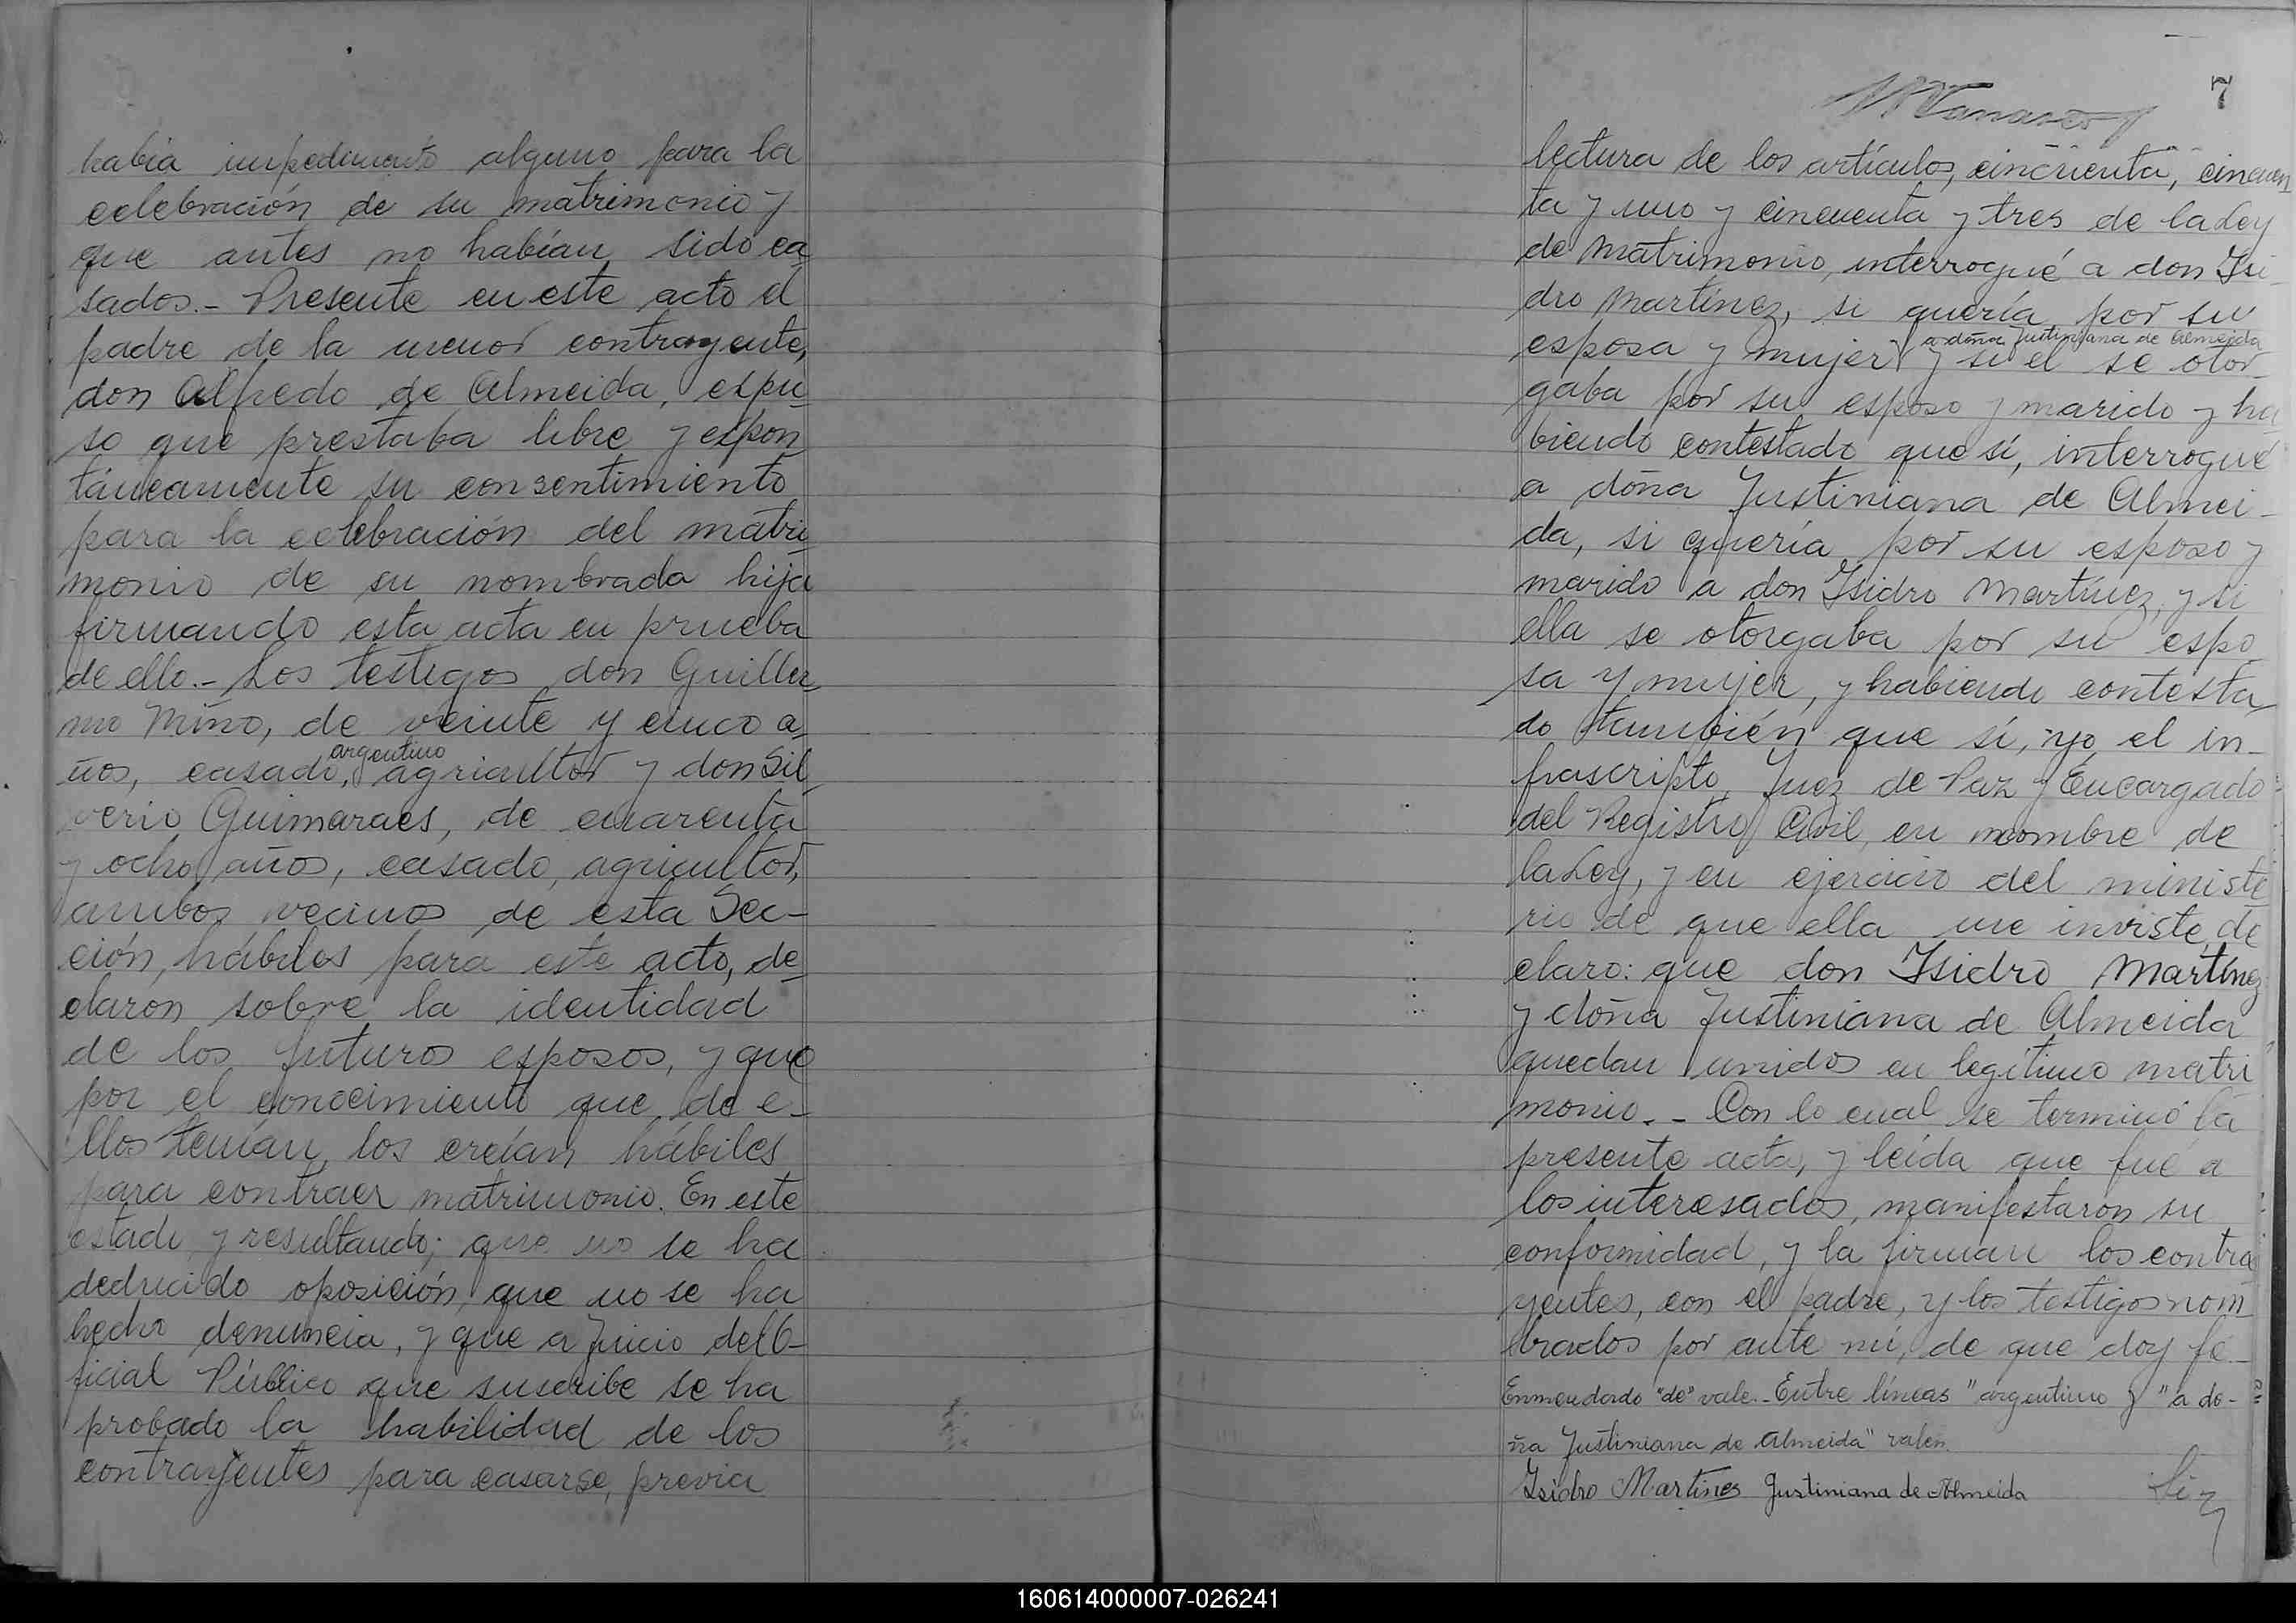 había impedimento alguno para la
celebración de su matrimonio y
que antes no habían sido ca
sados.- Presente en este acto el
padre de la menor contrayente,
don Alfredo de Almeida, expu-
so que prestaba libre y espon
táneamente su consentimiento
para la celebración del matri
monio de su nombrada hija
firmando esta acta en prueba
de ello.- Los testigos don Guiller
mo Miño, de veinte y cinco a-
argentino
ños, casado, agricultor y don Sil
verio Guimaraes, de cuarenta
y ocho años, casado, agricultor,
ambos vecinos de esta Sec-
ción, hábiles para este acto, de
claron sobre la identidad
de los futuros esposos, y que
por el conocimiento que de e-
llos tenían los creían hábiles
para contraer matrimonio. En este
estado y resultando; que no se ha
deducido oposición, que no se ha
hecho denuncia, y que a juicio del O-
ficial Público que suscribe se ha
probado la habilidad de los
contrayentes para casarse, previa
7
lectura de los artículos, cincuenta, cincuen
ta y uno y cincuenta y tres de la Ley
de Matrimonio, interrogué a don Isi
dro Martínez, si quería por su
a doña Justiniana de Almeida
esposa y mujer y si el se otor-
gaba por su esposo y marido y ha
biendo contestado que sí, interrogué
a doña Justiniana de Almei-
da, si quería por su esposo y
marido a don Isidro Martínez, y si
ella se otorgaba por su espo
sa y mujer, y habiendo contesta
do también que sí, yo el in-
frascripto Juez de Paz y Encargado
del Registro Civil, en nombre de
la Ley, y en ejercicio del ministe
rio de que ella me inviste, de
claro: que don Isidro Martínez
y doña Justiniana de Almeida
quedan unidos en legítimo matri
monio.- Con lo cual se terminó la
presente acta, y leída que fué a
los interesados, manifestaron su
conformidad, y la firman los contra
yentes, con el padre, y los testigos nom
brados por ante mí, de que doy fé.-
Enmendado "de" vale.- Entre líneas "argentino y "a do-
ña Justiniana de Almeida" valen
Isidro Martines Justiniana de Almeida
160614000007-026241